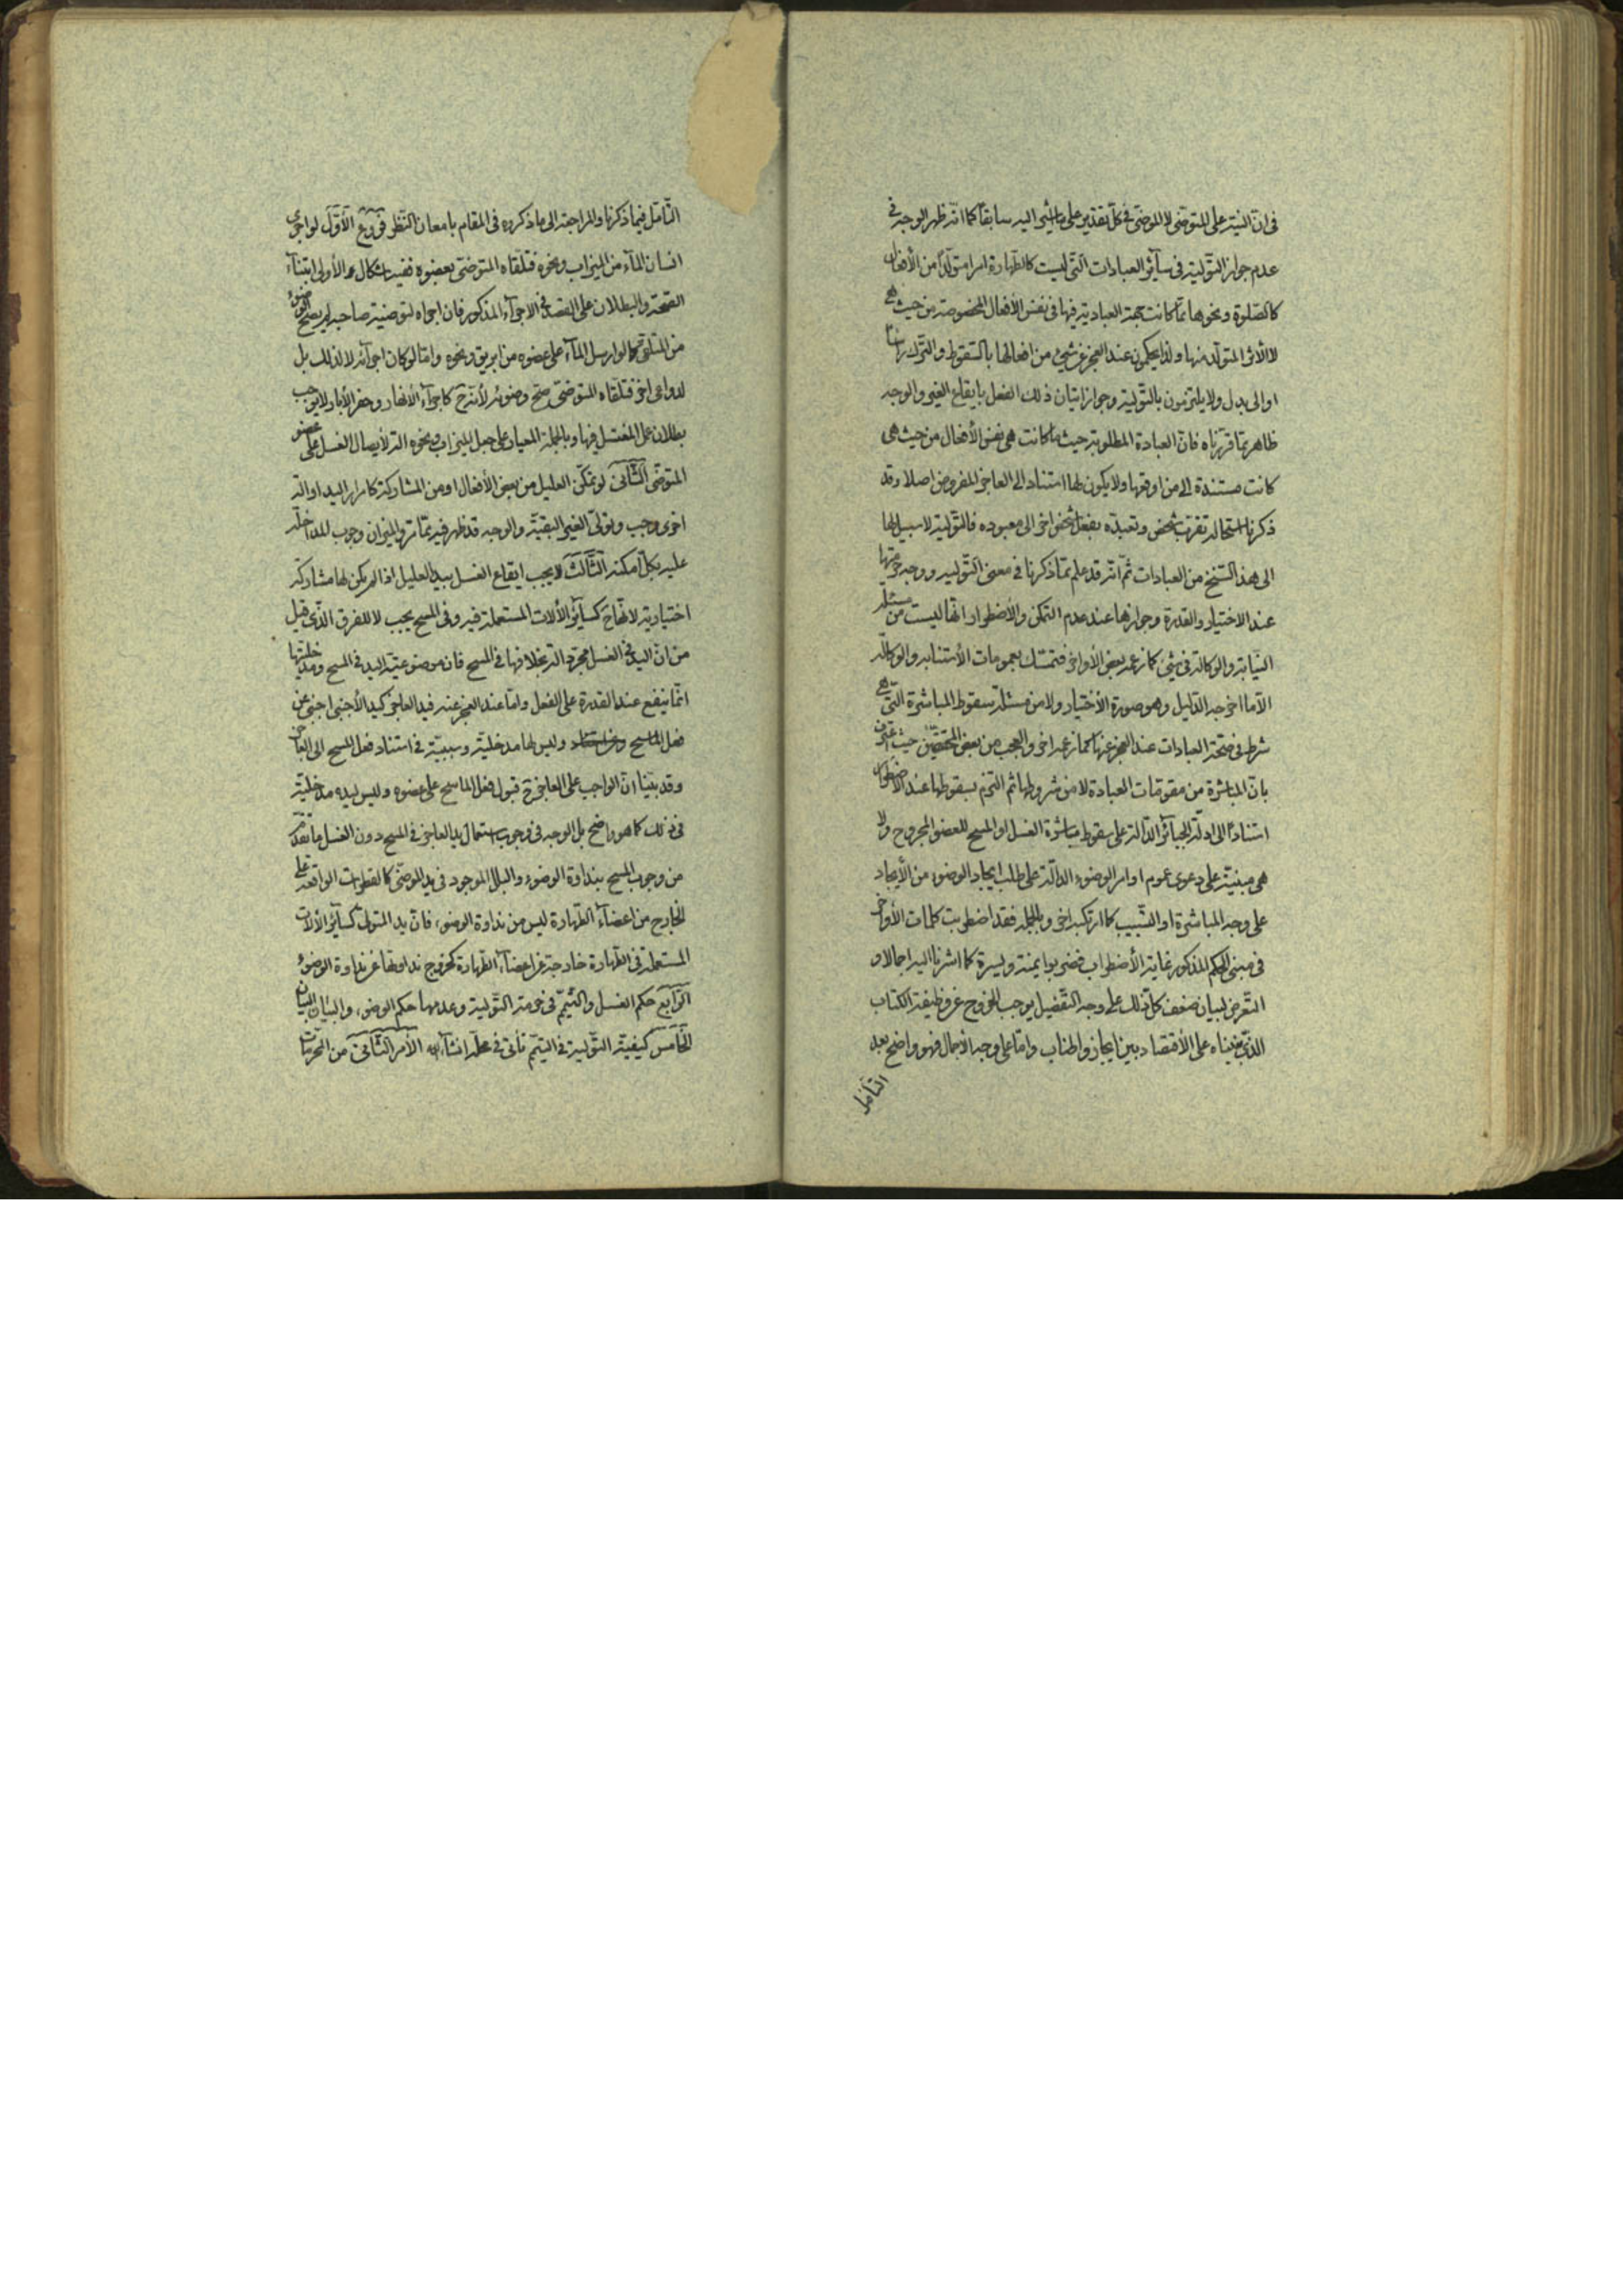 فى انّ النيّة على المتوضّى لا الموضّى فى كلّ تقدير على ما اشير اليه سابقاً كما انّه ظهر الوجه فى
عدم جواز التولية فى سآئر العبادات الّتى ليست كالطهارة امرا متولّداً من الأفعال
كالصّلوة و نحوها ممّا كانت جهة العباديّة فيها فى نفس الأفعال المخصوصة من حيث هى
لا الأثر المتولّد منها و لذا يحكمون عند العجز عن شىء من افعالها بالسّقوط و التّرك راسا
او الى بدل و لا يلتزمون بالتّولية و جواز اتيان ذلك الفعل بايقاع الغير و الوجه
ظاهر ممّا قرّرناه فانّ العبادة المطلوبة حيثما كانت هى نفس الأفعال من حيث هى
كانت مستندة الى من اوقعها و لا يكون لها استناد الى العاجز المفروض اصلا و قد
ذكرنا استحالة تقرّب شخص و تعبّده بفعل شخص اخر الى معبوده فالتّولية لا سبيل لها
الى هذا السّنخ من العبادات ثمّ انّه قد علم ممّا ذكرنا فى معنى التّولية و وجه حرمتها
عند الاختيار و القدرة و جوازها عند عدم التمكّن و الأضطرار انّها ليست من مسئلة
النّيابة و الوكالة فى شىء كما زعمه بعض الأواخر فتمسّك بعمومات الأستنابة و الوكالة
الّا ما اخرجه الدّليل و هو صورة الأختيار و لا من مسئلة سقوط المباشرة الّتى هى
شرط فى صحّة العبادات عند العجز عنها كما زعمه اخر و العجب من بعض المحقّقين حيث اعترف
بانّ المباشرة من مقوّمات العبادة لا من شروطها ثم التزم بسقوطها عند الأضطرار
استناداً الى ادلّة الجبآئر الدّالة على سقوط مباشرة الغسل او المسح للعضو المجروح و لا
هى مبنيّة على دعوى عموم اوامر الوضوء الدالّة على طلب ايجاد الوضوء من الأيجاد
على وجه المباشرة او التّسبيب كما ارتكبه اخر و بالجملة فقد اضطربت كلمات الأواخر
فى مبنى الحكم المذكور غاية الأضطراب فضربوا يمنة و يسرة كما اشرنا اليه اجمالا و
التعّرض لبيان ضعف كلّ ذلك على وجه التّفصيل يوجب الخروج عن وظيفة الكتاب
الّذى بنيناه على الأقتصاد بين ايجاز و اطناب و امّا على وجه الأجمال فهو واضح بعد
التأمّل
التّأمّل فيما ذكرنا و المراجعة الى ما ذكروه فى المقام بامعان النّظر فروع الأوّل لو اجرى
انسان المآء من الميزاب و نحوه فتلقاه المتوضى بعضوه ففيه اشكال و الأولى ابتنآء
الصّحة و البطلان على القصد فى الاجرآء المذكور فان اجراه لتوضئة صاحبه لم يصحّ الوضوء
من المتلقّى كما لو ارسل المآء على عضوه من ابريق و نحوه و امّا لو كان اجرآئه لا لذلك بل
لدواعى اخر فتلقاه المتوضّى صحّ وضوئه لأنّه ح كاجرآء الأنهار و حفر الأبار لا يوجب
بطلان عمل المغتسل فيها و بالجملة المعيار على جعل الميزاب و نحوه الة لأيصال الغسل على عضو
المتوضّى الثّانى لو تمكّن العليل من بعض الأفعال او من المشاركة كامرار اليد او الة
اخرى وجب و تولّى الغير البقيّة و الوجه قد ظهر فيه ممّا مرّ و الميزان وجوب المداخلة
عليه بكلّ ما امكنه الثّالث لا يجب ايقاع الغسل بيد العليل اذا لم يكن لها مشاركة
اختيارية لانّها ح كسآئر الألات المستعملة فيه و فى المسح يجب لا للفرق الّذى قيل
من انّ اليد فى الغسل مجرّد الة بخلافها فى المسح فان موضوعيّة اليد فى المسح و مدخليّتها
انّما ينفع عند القدرة على الفعل و امّا عند العجز عنه فيد العاجز كيد الأجنبى اجنبى عن
فعل الماسح و ليس لها مدخليّة و سببيّة فى استناد فعل المسح الى العاجز
و قد بيّنا انّ الواجب على العاجز ح قبول فعل الماسح على عضوه و ليس ليده مدخليّة
فى ذلك كما هو واضح بل الوجه فى وجوب استعمال يد العاجز فى المسح دون الغسل ما تقدّم
من وجوب المسح بنداوة الوضوء و البلل الموجود فى يد الموضّى كالقطرات الواقعة على
الخارج من اعضآء الطّهارة ليس من نداوة الوضوء فانّ يد المتولّى كسآئر الألات
المستعملة فى الطهارة خارجة عن اعضآء الطّهارة كخروج نداوتها عن نداوة الوضوء
الرّابع حكم الغسل و التيمّم فى حرمة التّولية و عدمها حكم الوضوء و البيان البيان
الخامس كيفيّة التّولية فى التيمّم تأتى فى محلّه انشآء الله الأمر الثّانى من المحرّمات